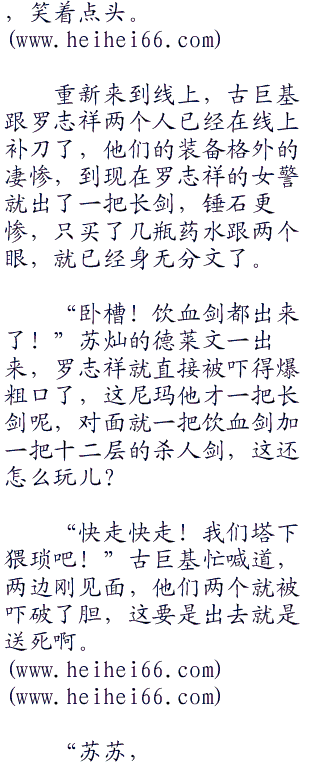 ，笑着点头。
(www.heihei66.com)
重新来到线上，古巨基
跟罗志祥两个人已经在线上
补刀了，他们的装备格外的
凄惨，到现在罗志祥的女警
就出了一把长剑，锤石更
惨，只买了几瓶药水跟两个
眼，就已经身无分文了。
“卧槽！饮血剑都出来
了！”苏灿的德莱文一出
来，罗志祥就直接被吓得爆
粗口了，这尼玛他才一把长
剑呢，对面就一把饮血剑加
一把十二层的杀人剑，这还
怎么玩儿？
“快走快走！我们塔下
猥琐吧！”古巨基忙喊道，
两边刚见面，他们两个就被
吓破了胆，这要是出去就是
送死啊。
(www.heihei66.com)
(www.heihei66.com)
“苏苏，